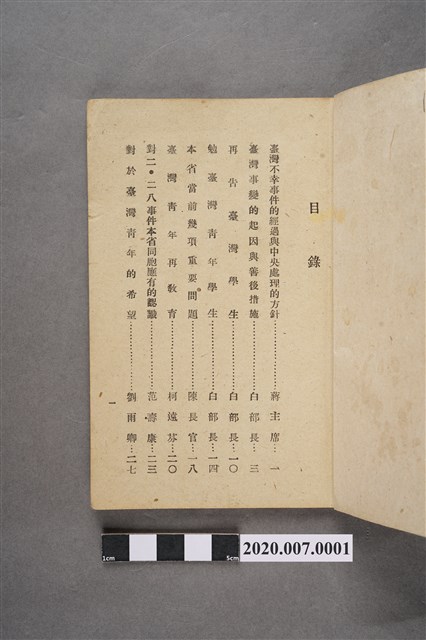 目錄
臺灣不幸事件的經過與中央處理的方針…………蔣主席…一
臺灣事變的起因與善後措施…………白部長…三
再告臺灣學生…………白部長…一〇
勉臺灣青年學生…………白部長…一四
本省當前幾項重要問題…………陳長官…一八
臺灣青年再教育…………柯遠芬…二〇
對二・二八事件本省同胞應有的觀點…………范壽康…二三
對於臺灣青年的希望…………劉雨卿…二七
一
1cm
5cm
2020.007.0001